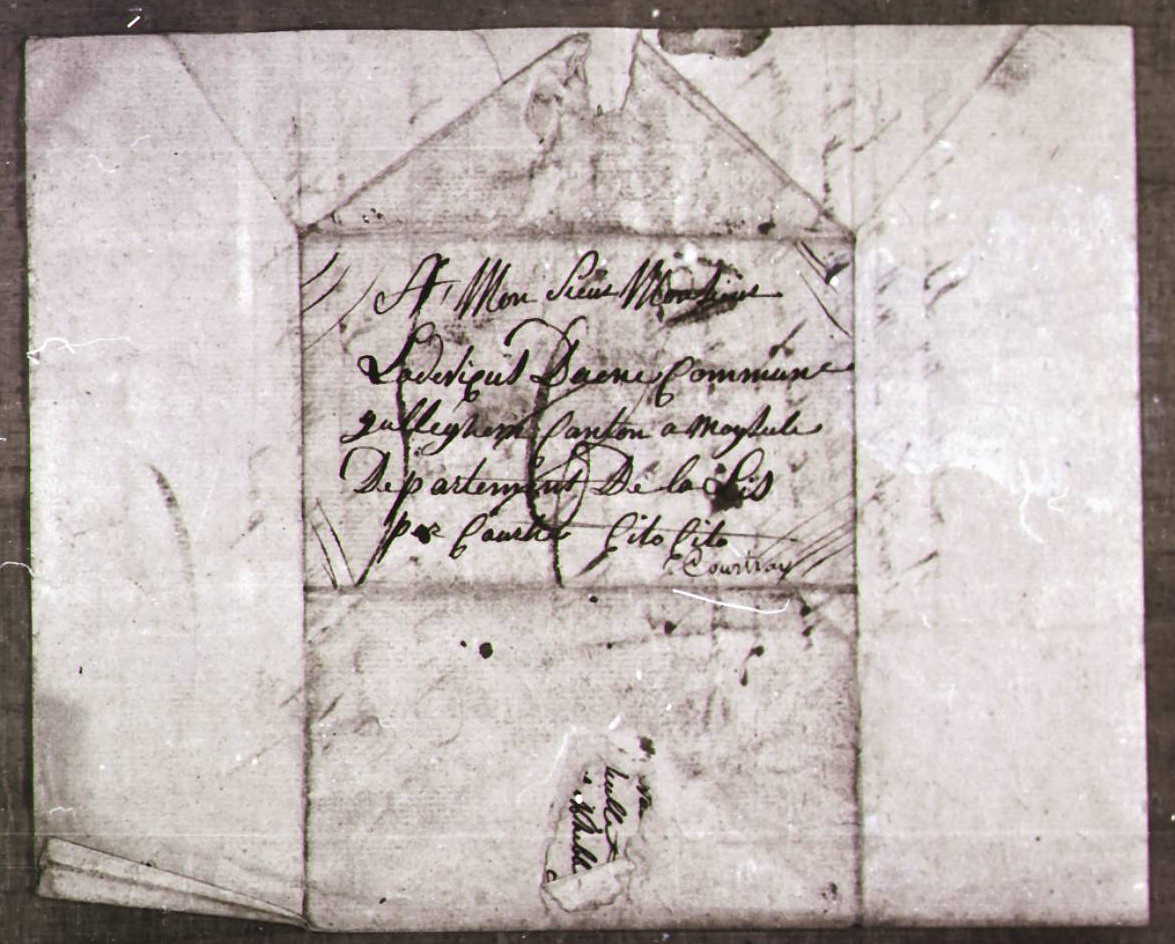 A Mon Sieur Monsieur
Lodevicus Daene Commune
gulleghem Canton a Moghele
Departement De la Lis
per Courtr Cito Cito
Courtray